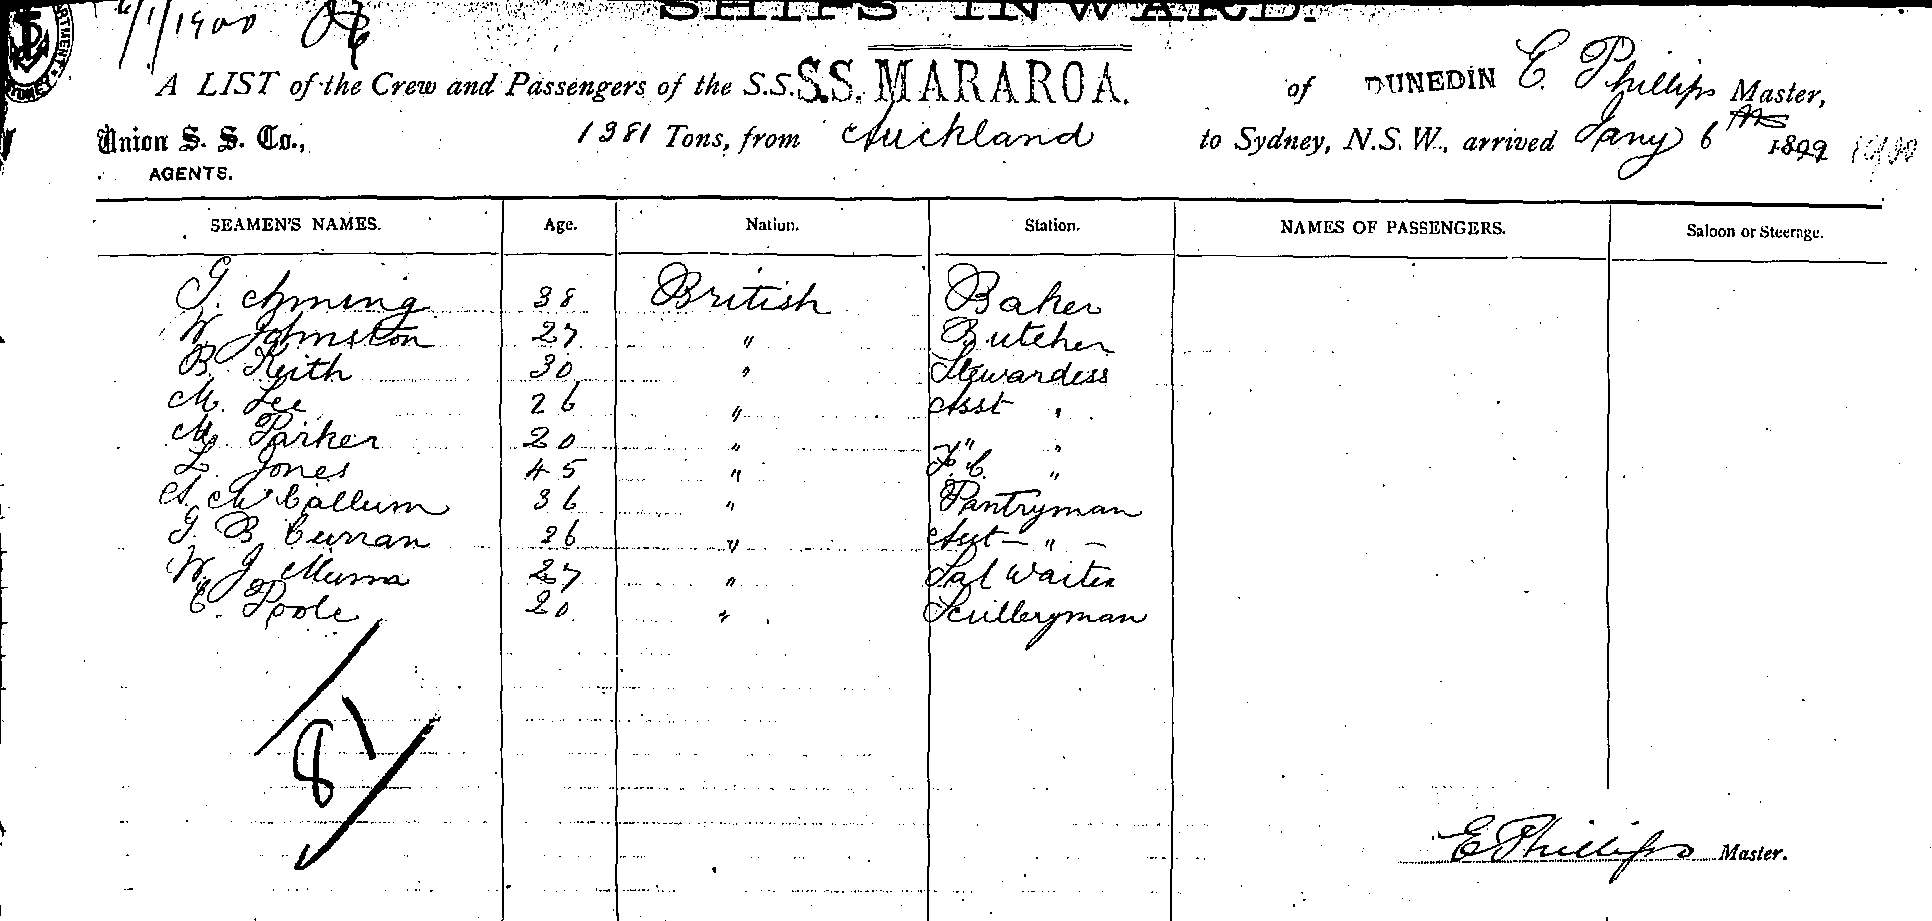 6/1/1900
SHIPS INWARD.
A LIST of the Crew and Passengers of the S.S. S.S. MARAROA. of DUNEDIN E. Phillips Master,
Union S. S. Co., 1381 Tons, from Auckland to Sydney, N.S.W., arrived Jany 6 1899 1900
AGENTS.
SEAMEN'S NAMES. Age. Nation. Station. NAMES OF PASSENGERS. Saloon or Steerage.
G. Aming 38 British Baker
W. Johnston 27 " Butcher
B. Keith 30 " Stewardess
M. Lee 26 " Asst "
M. Parker 20 " " "
L. Jones 45 " F.C. "
A. McCallum 36 " Pantryman
G. B. Curran 26 " Asst — " —
W. J. Munra 27 " Sal Waiter
E. Poole 20 " Sculleryman
81
E Phillips Master.